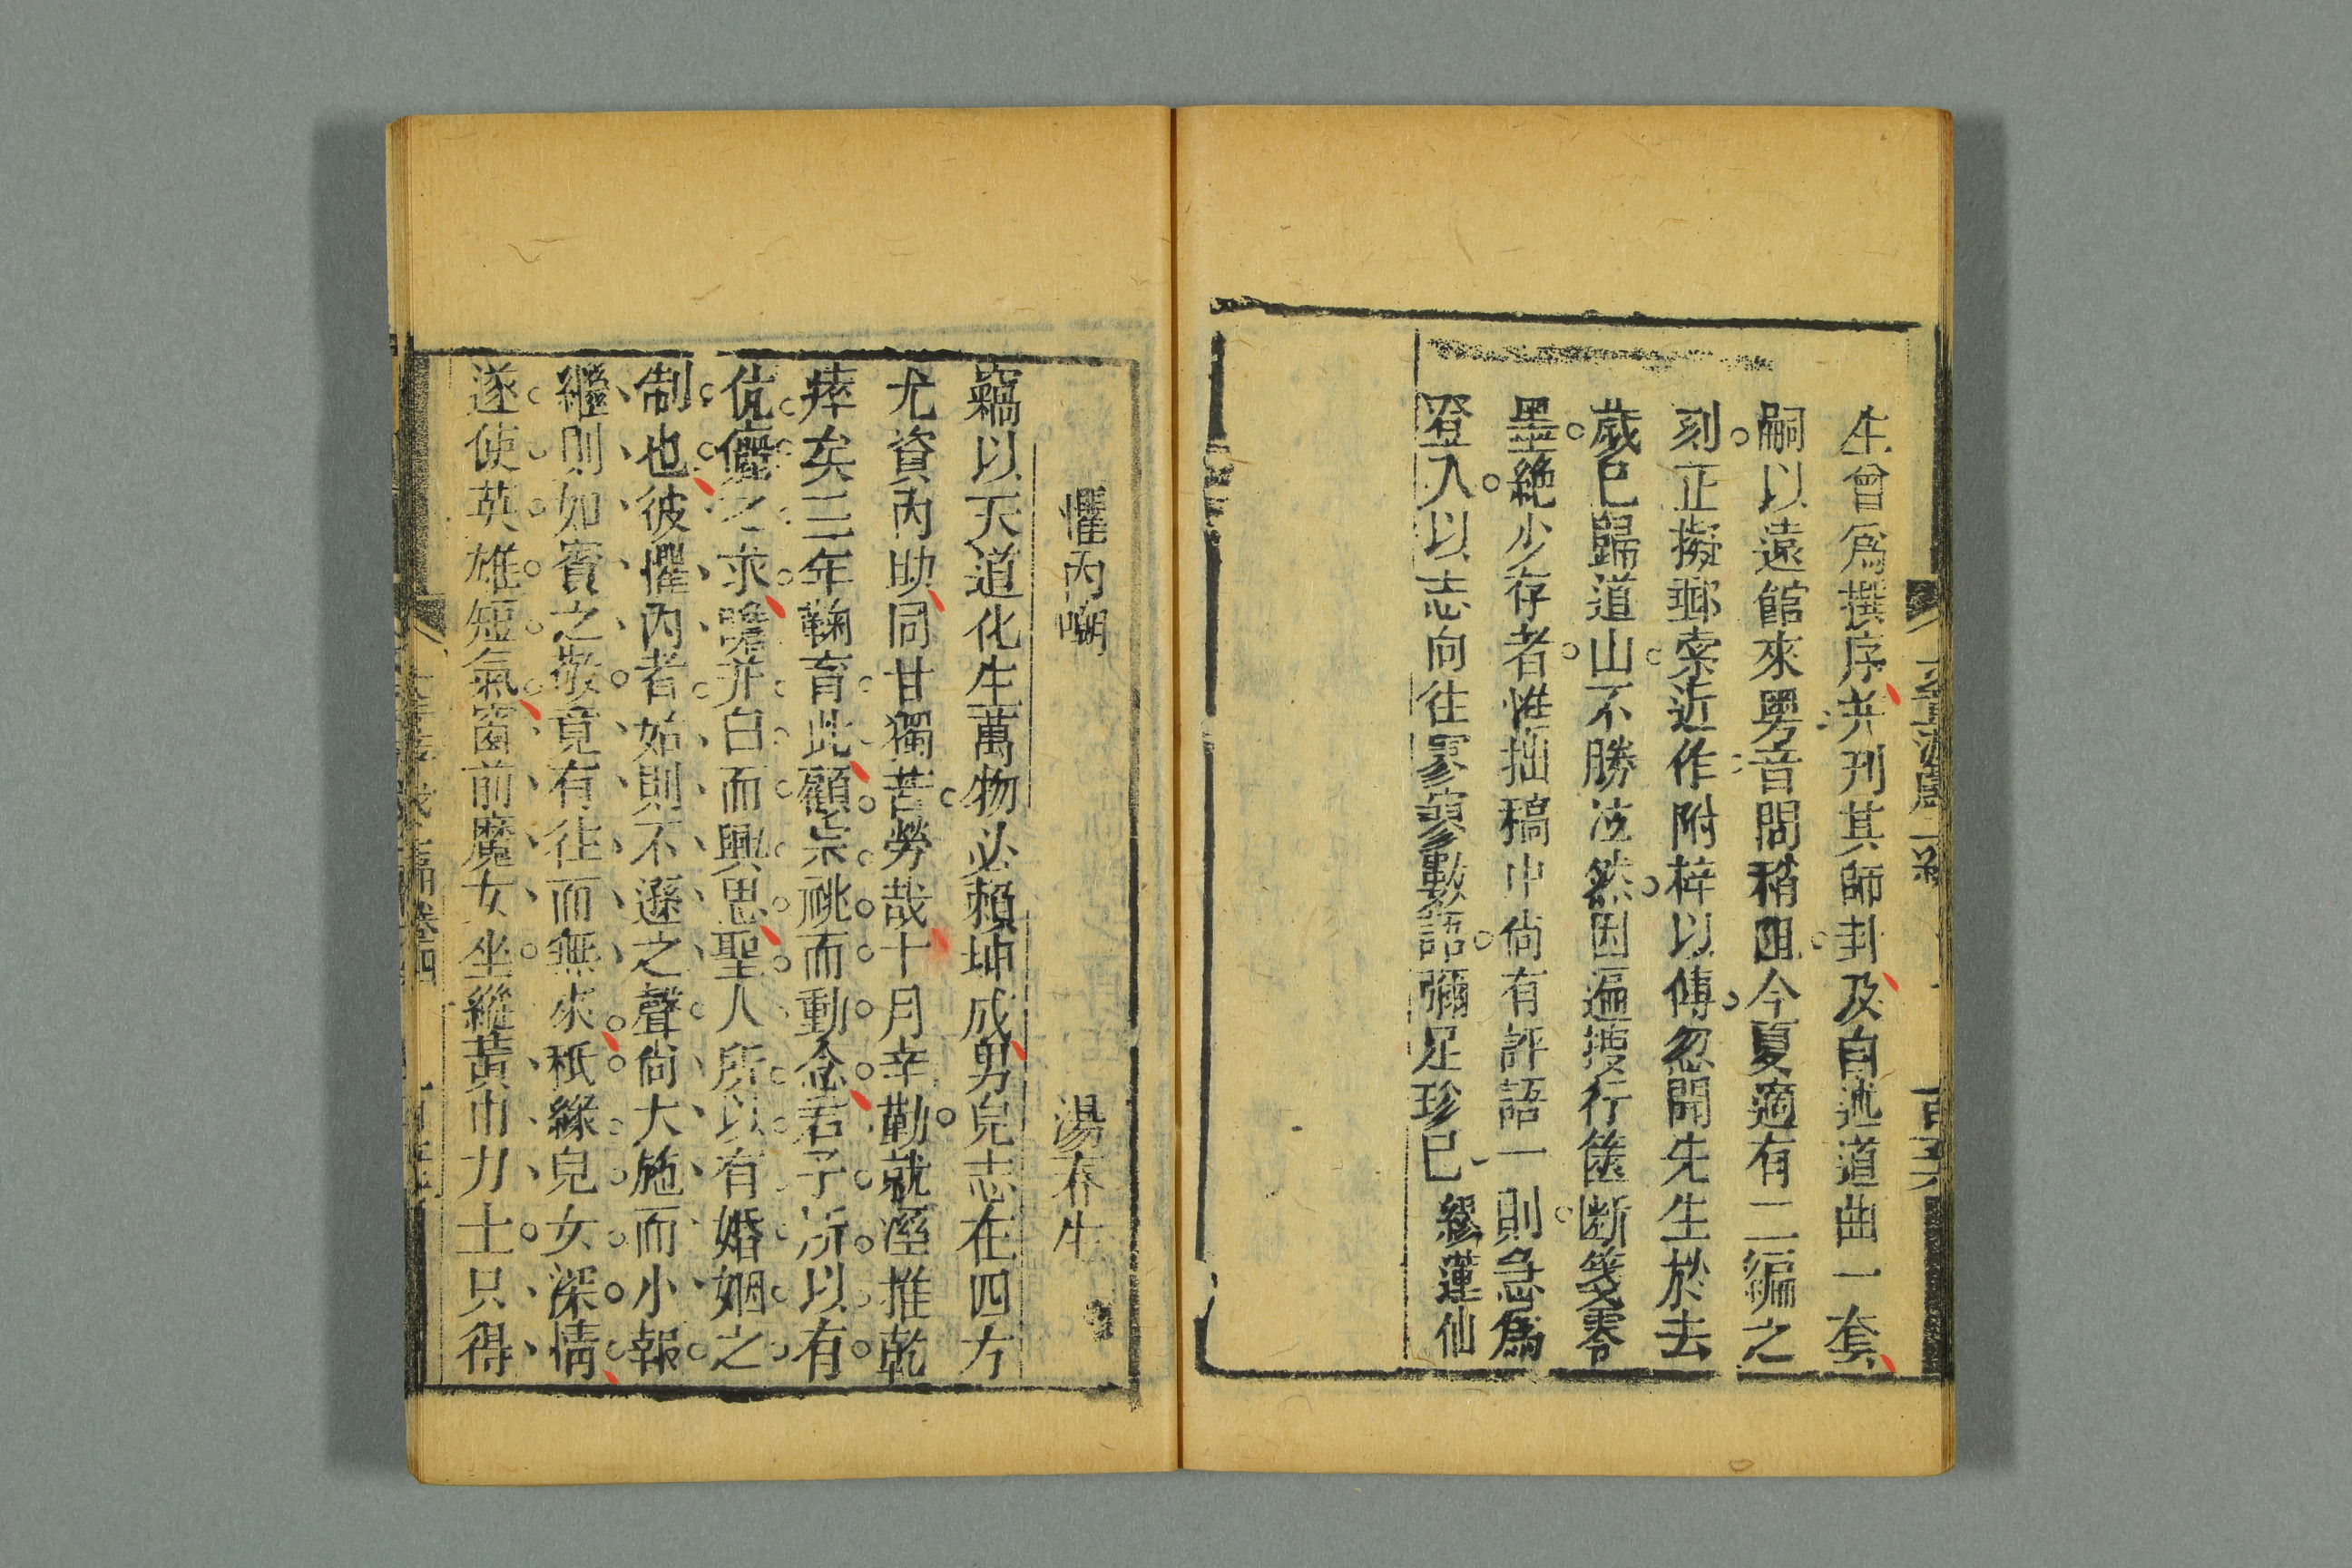 生曾爲撰序并刊其師封及自述道曲一套
嗣以遠館來粤音問稍阻今夏適有二編之
刻正擬郵索近作附梓以傳忽聞先生於去
歲已歸道山不勝泫然因遍搜行篋斷箋零
墨絶少存者惟拙稿中尙有評語一則急爲
登入以志向往寥寥數語彌足珍已 繆蓮仙
懼內嘲 湯春生
竊以天道化生萬物必賴坤成男兒志在四方
尤資內助同甘獨苦勞哉十月辛勤就溼推乾
瘁矣三年鞠育此顧宗祧而動念君子所以有
伉儷之求瞻井臼而興思聖人所以有婚姻之
制也彼懼內者始則不遜之聲尙大施而小報
繼則如賓之敬竟有往而無來秪緣兒女深情
遂使英雄短氣窗前魔女坐縱黃巾力士只得